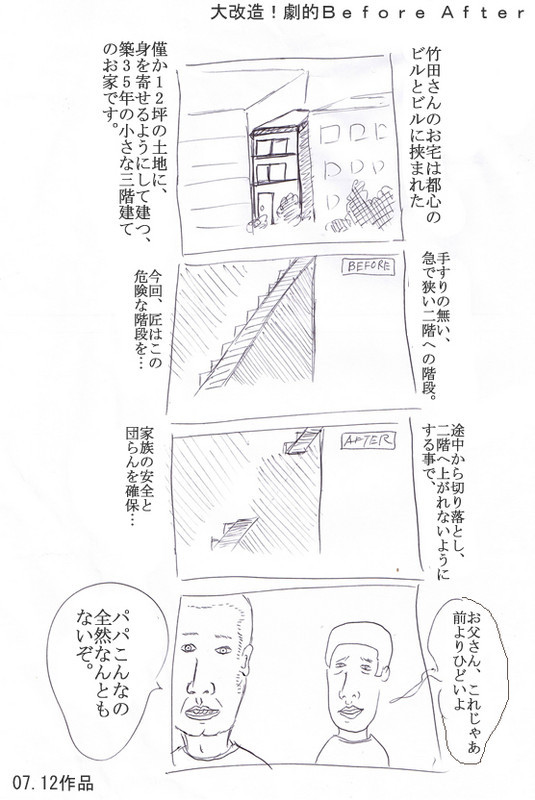 大改造！劇的Ｂｅｆｏｒｅ Ａｆｔｅｒ
竹田さんのお宅は都心の
ビルとビルに挟まれた
僅か１２坪の土地に、
身を寄せるようにして建つ、
築３５年の小さな三階建て
のお家です。
BEFORE
手すりの無い、
急で狭い二階への階段。
今回、匠はこの
危険な階段を…
AFTER
途中から切り落とし、
二階へ上がれないように
する事で、
家族の安全と
団らんを確保…
お父さん、これじゃあ
前よりひどいよ
パパこんなの
全然なんとも
ないぞ。
07.12作品